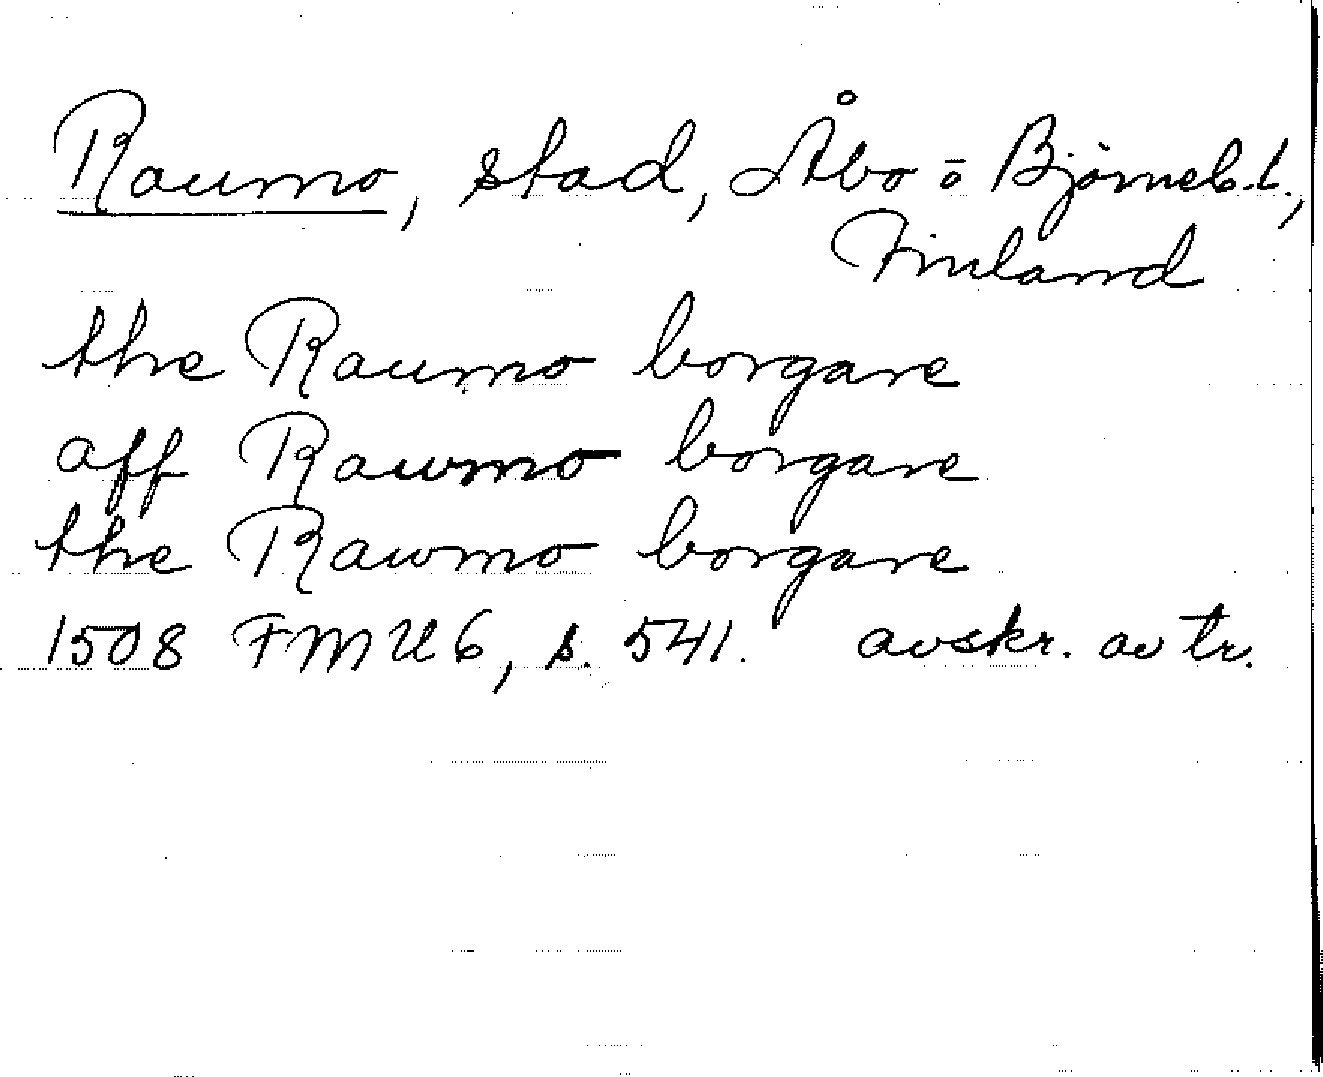 Raumo, stad, Åbo o Björneb. l.,
Finland
the Raumo borgare
aff Rawmo borgare
the Rawmo borgare
1508 FMU 6, s. 541. avskr. av tr.